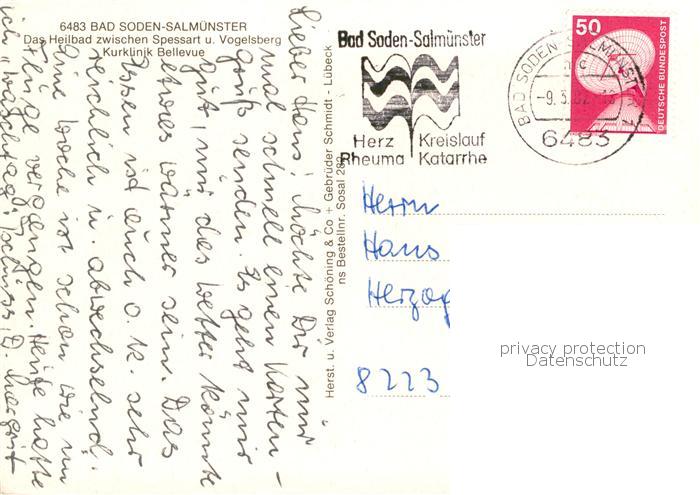 6483 BAD SODEN-SALMÜNSTER
Das Heilbad zwischen Spessart u. Vogelsberg
Kurklinik Bellevue
Lieber Hans! Möchte Dir nur
mal schnell einen Karten-
gruß senden. Es geht mir
gut, nur das Wetter könnte
etwas wärmer sein. Das
Essen ist auch o.k. sehr
reichlich u. abwechselnd.
Eine Woche ist schon wie im
Fluge vergangen. Heute hatte
ich "Waschtag". Tschüss, D. Margrit
Herst. u. Verlag Schöning & Co + Gebrüder Schmidt - Lübeck
ns Bestellnr. Sosal 289
Bad Soden-Salmünster
Herz Kreislauf
Rheuma Katarrhe
BAD SODEN-SALMÜNSTER 1
-9.3.82
6483
50
DEUTSCHE BUNDESPOST
Herrn
Hans
Herzog
8223
privacy protection
Datenschutz